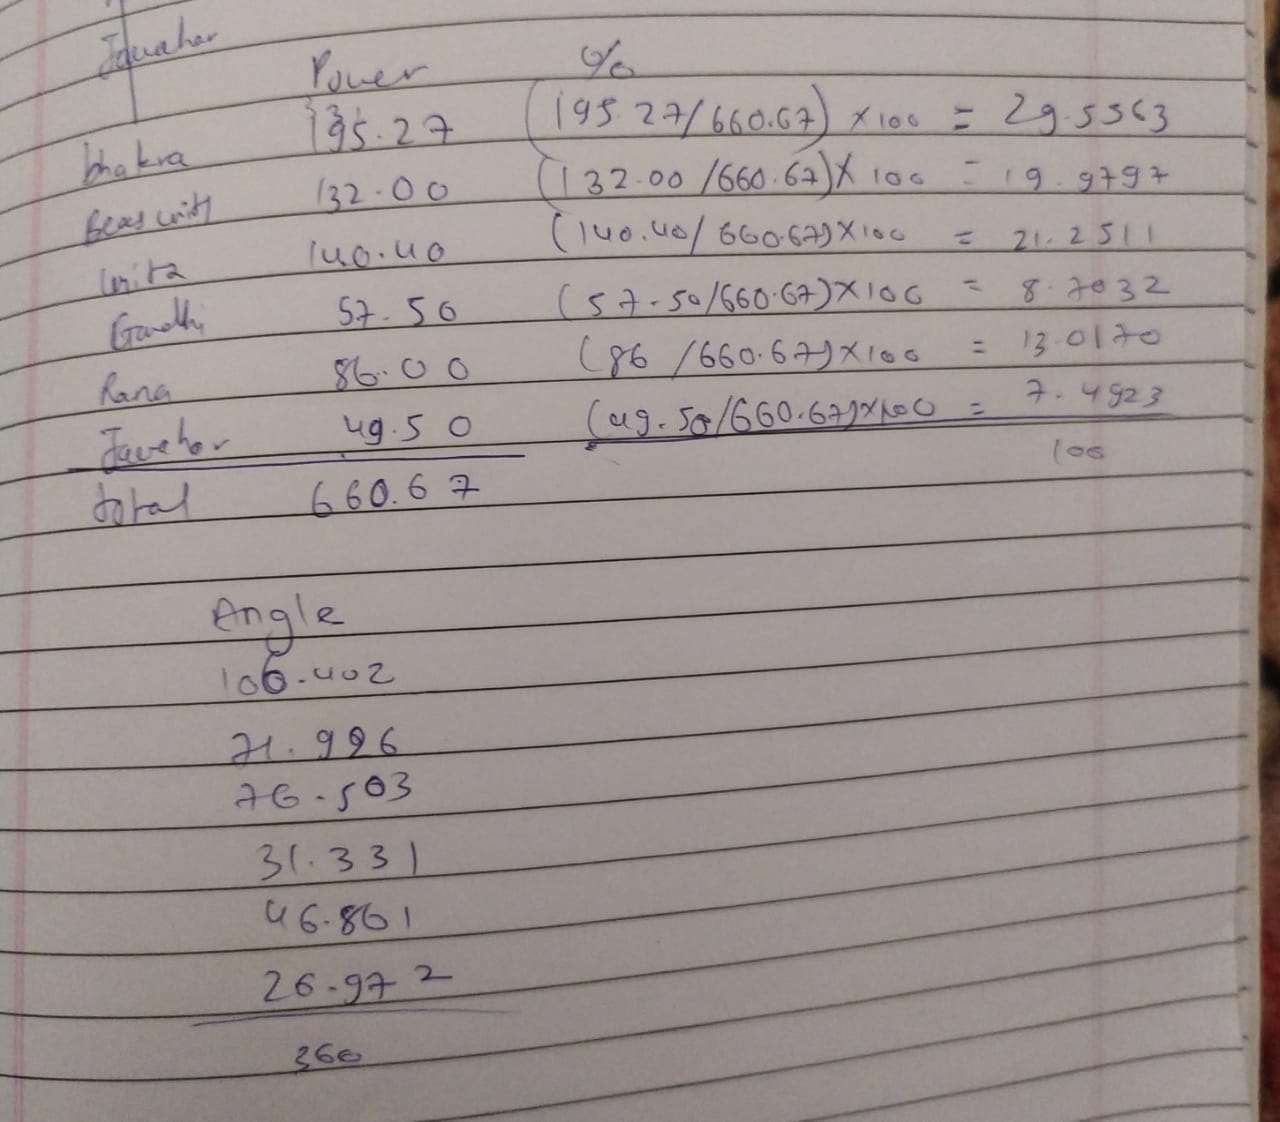 Jawahar
Power %
bhakra 195.27 (195.27/660.67) ×100 = 29.5563
Beas unit1 132.00 (132.00/660.67)× 100 = 19.9797
Unit2 140.40 (140.40/660.67)×100 = 21.2511
Gandhi 57.50 (57.50/660.67)×100 = 8.7032
Rana 86.00 (86/660.67)×100 = 13.0170
Jawahar 49.50 (49.50/660.67)×100 = 7.4923
total 660.67 100
Angle
106.402
71.926
76.503
31.331
46.861
26.972
360